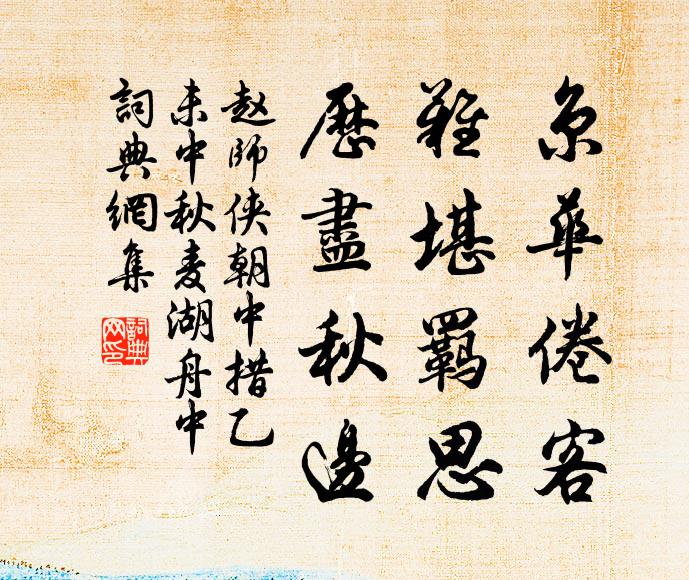 京華倦客
難堪羈思
歷盡秋邊
赵師侠朝中措乙
未中秋麦湖舟中
詞典網集
詞典网印